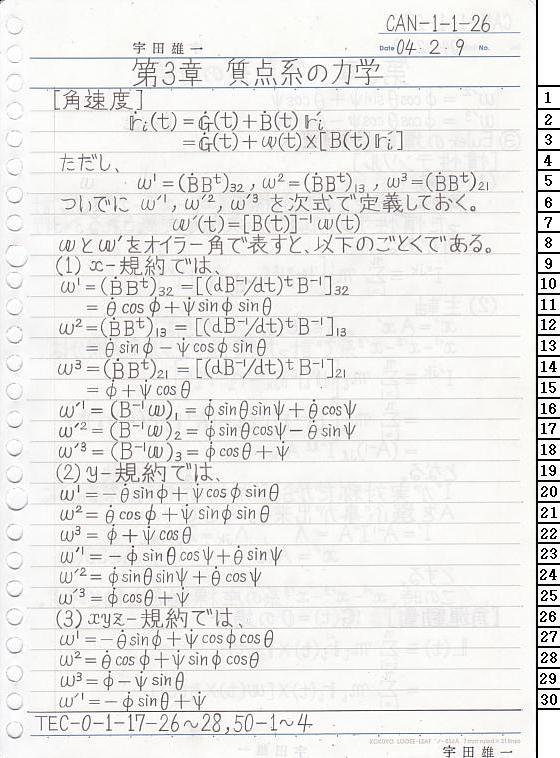 CAN-1-1-26
宇田雄一
Date 04・2・9 No.
第3章 質点系の力学
[角速度]
𝕣ᵢ(t) = Ġ(t) + Ḃ(t) 𝕣′ᵢ
= Ġ(t) + 𝕨(t) × [B(t) 𝕣′ᵢ]
ただし、
ω¹ = (ḂBᵗ)₃₂ , ω² = (ḂBᵗ)₁₃ , ω³ = (ḂBᵗ)₂₁
ついでに ω′¹, ω′², ω′³ を次式で定義しておく。
𝕨′(t) = [B(t)]⁻¹ 𝕨(t)
𝕨と𝕨′をオイラー角で表すと、以下のごとくである。
(1) x-規約では、
ω¹ = (ḂBᵗ)₃₂ = [(dB⁻¹/dt)ᵗ B⁻¹]₃₂
= θ̇ cosφ + ψ̇ sinφ sinθ
ω² = (ḂBᵗ)₁₃ = [(dB⁻¹/dt)ᵗ B⁻¹]₁₃
= θ̇ sinφ − ψ̇ cosφ sinθ
ω³ = (ḂBᵗ)₂₁ = [(dB⁻¹/dt)ᵗ B⁻¹]₂₁
= φ̇ + ψ̇ cosθ
ω′¹ = (B⁻¹𝕨)₁ = φ̇ sinθ sinψ + θ̇ cosψ
ω′² = (B⁻¹𝕨)₂ = φ̇ sinθ cosψ − θ̇ sinψ
ω′³ = (B⁻¹𝕨)₃ = φ̇ cosθ + ψ̇
(2) y-規約では、
ω¹ = −θ̇ sinφ + ψ̇ cosφ sinθ
ω² = θ̇ cosφ + ψ̇ sinφ sinθ
ω³ = φ̇ + ψ̇ cosθ
ω′¹ = −φ̇ sinθ cosψ + θ̇ sinψ
ω′² = φ̇ sinθ sinψ + θ̇ cosψ
ω′³ = φ̇ cosθ + ψ̇
(3) xyz-規約では、
ω¹ = −θ̇ sinφ + ψ̇ cosφ cosθ
ω² = θ̇ cosφ + ψ̇ sinφ cosθ
ω³ = φ̇ − ψ̇ sinθ
ω′¹ = −φ̇ sinθ + ψ̇
TEC-0-1-17-26~28,50-1~4
KOKUYO LOOSE-LEAF
宇田雄一
1
2
3
4
5
6
7
8
9
10
11
12
13
14
15
16
17
18
19
20
21
22
23
24
25
26
27
28
29
30